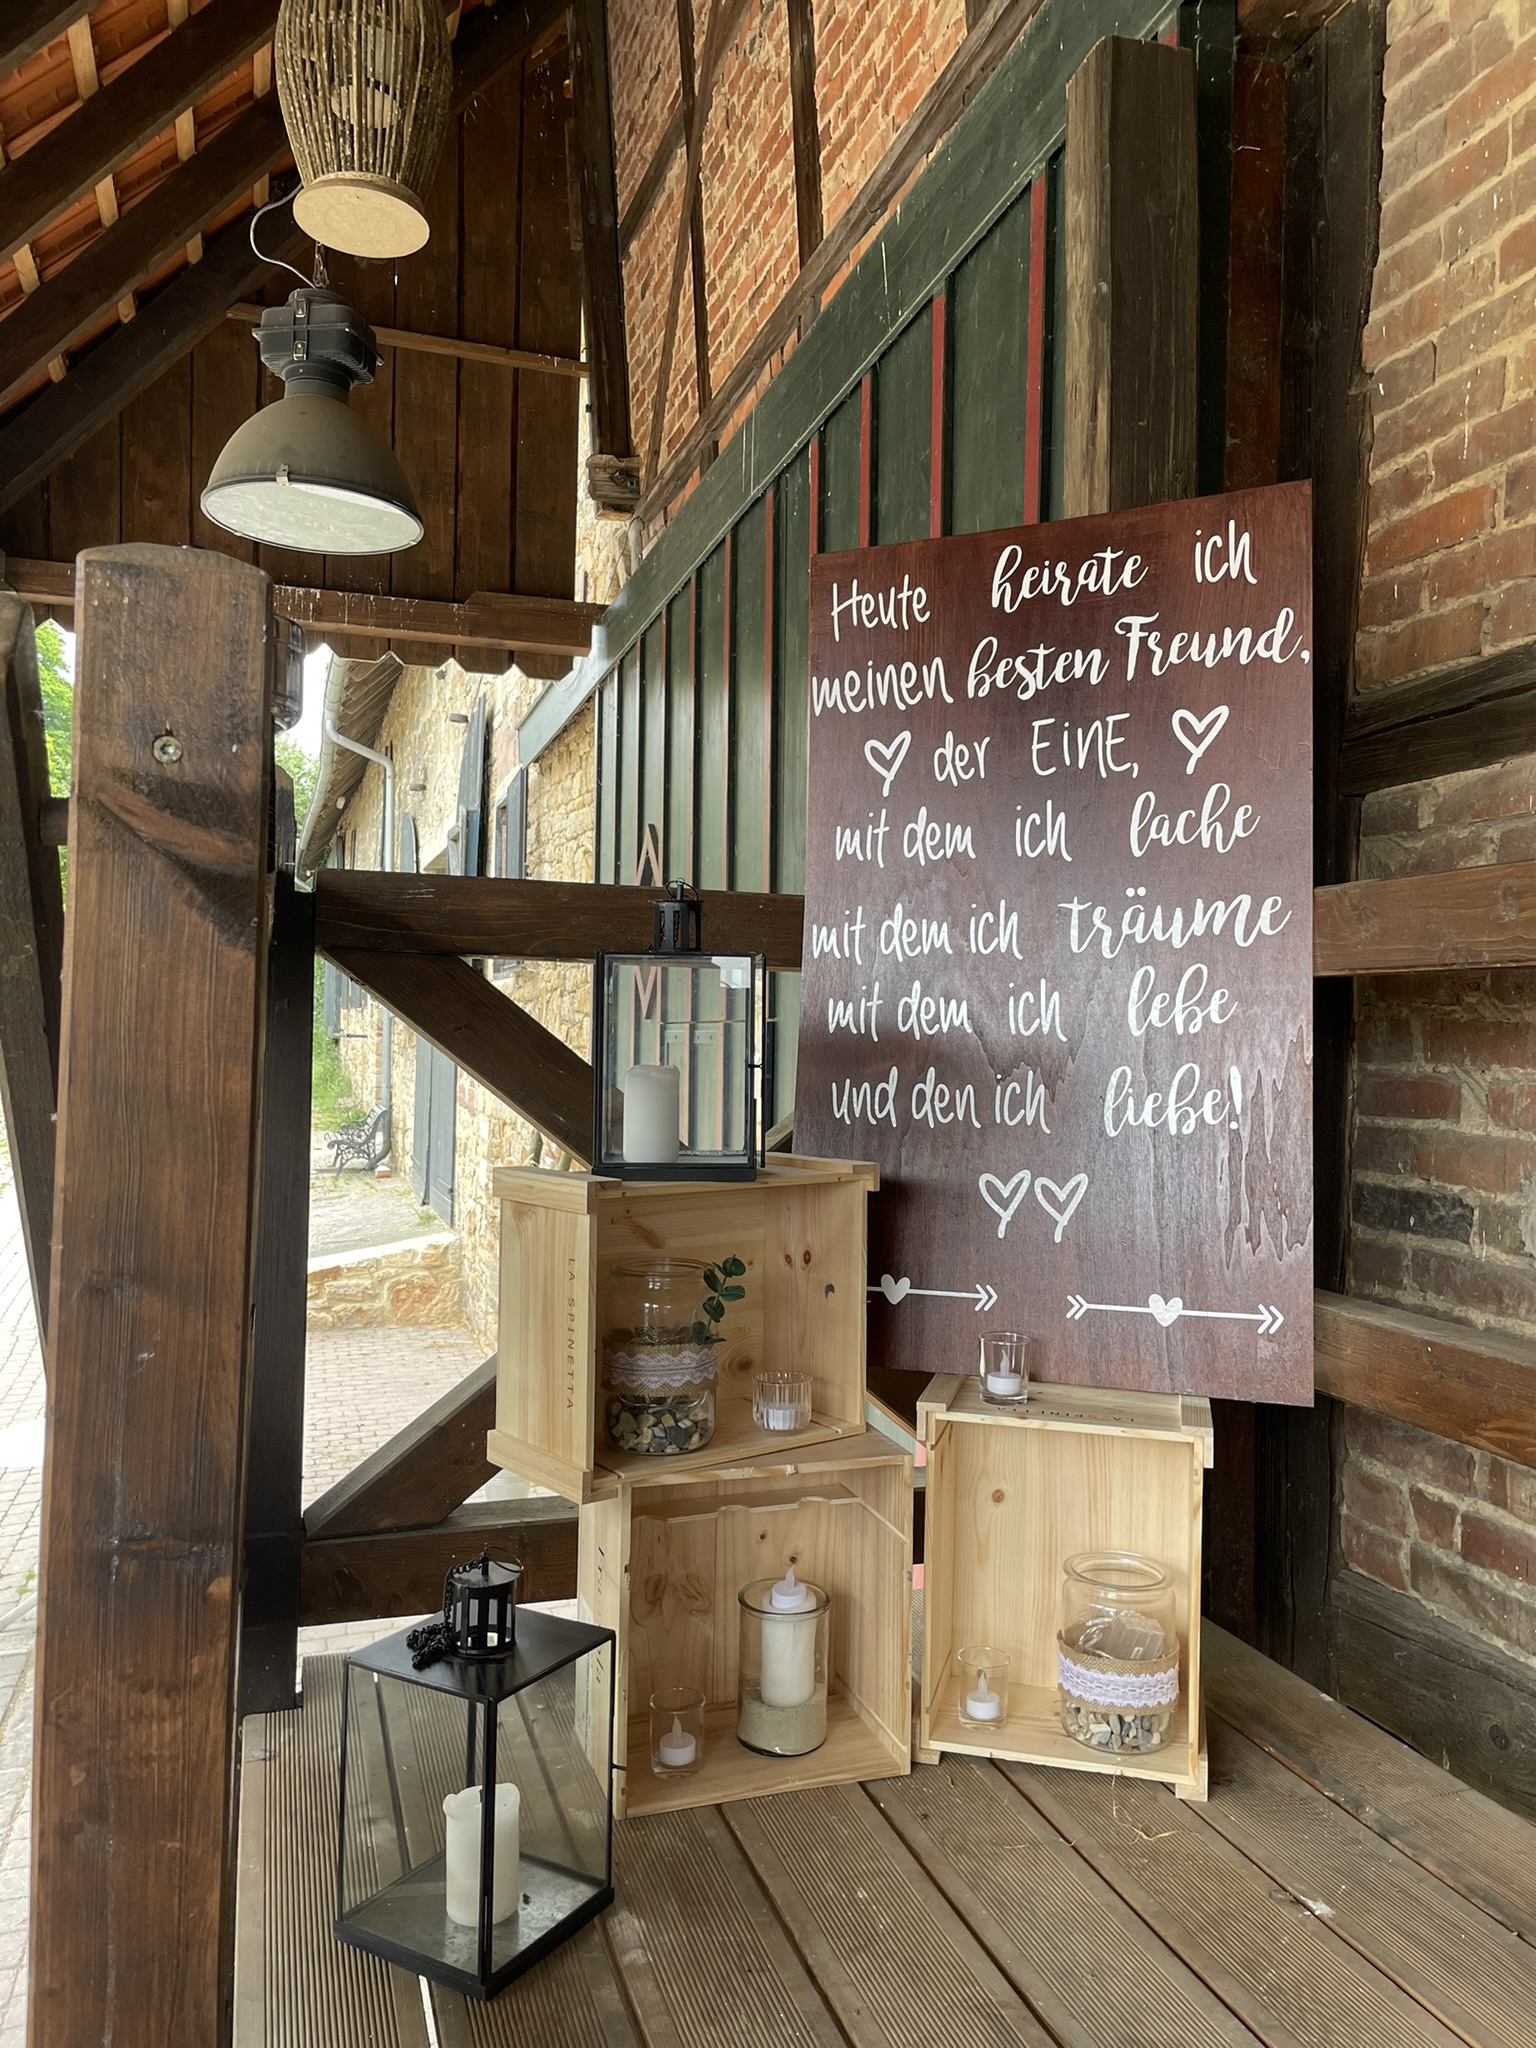 Heute heirate ich
meinen besten Freund,
der EiNE,
mit dem ich lache
mit dem ich träume
mit dem ich lebe
und den ich liebe!
LA SPINETTA
LA SPINETTA